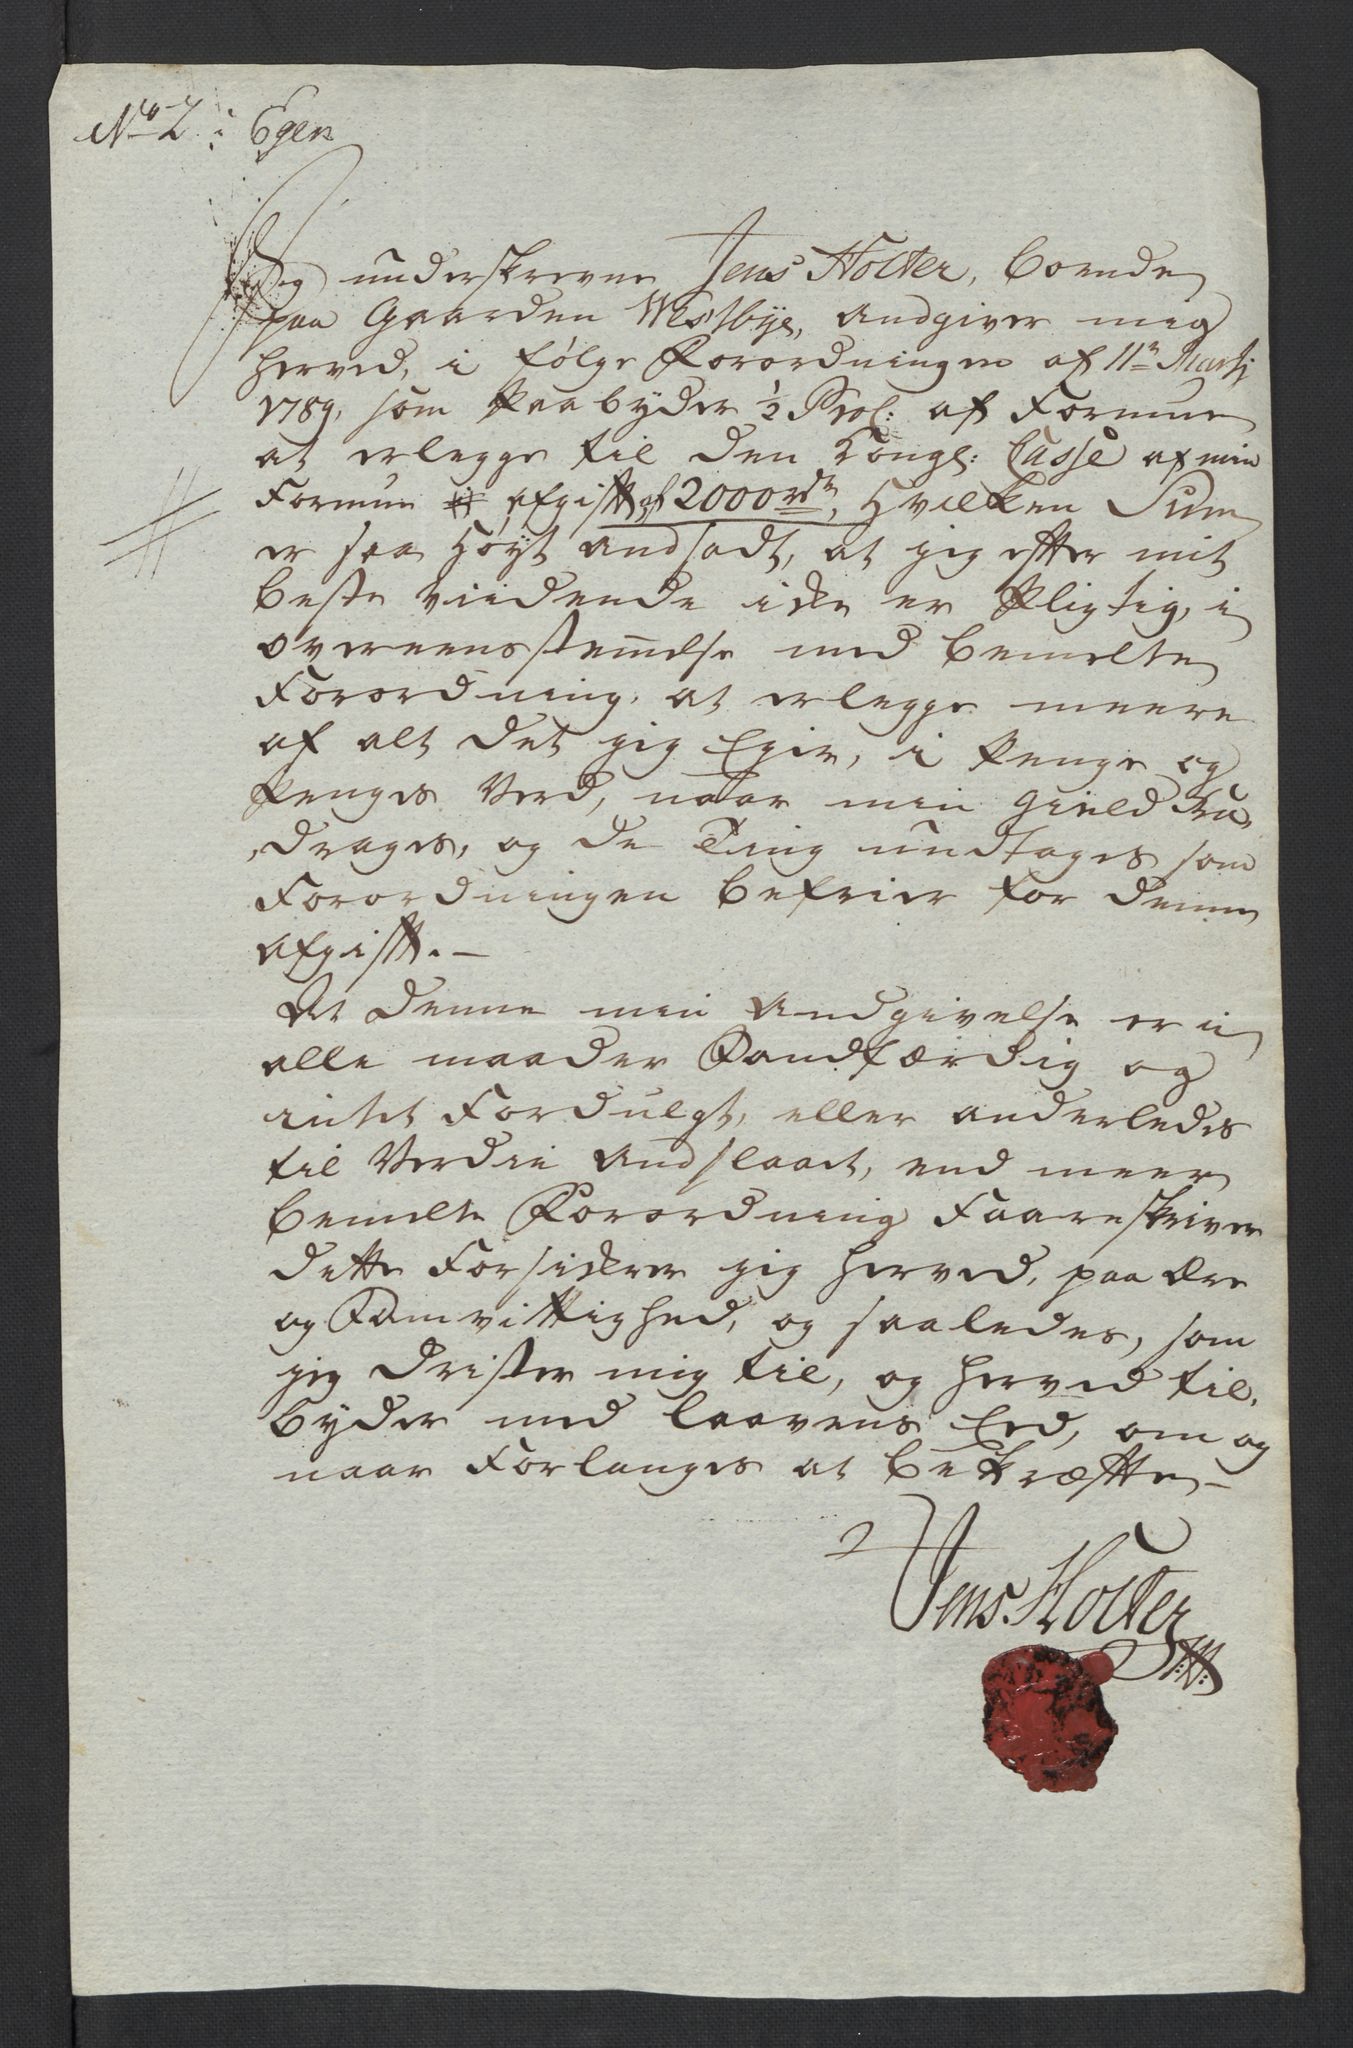 No 2 i Egen
Jeg underskrevne Jens Holter, boende
paa Gaarden Westbye, andgiver mig
herved, i følge Forordningen af 11te Martj
1789, som paabyder 1/2 Proc: af Formue
at erlegge til den Kongl: Casse af min
Formue # afgift af 2000 rdr, hvilken Sum
er saa høyt andsadt, at jeg efter mit
beste viidende icke er pligtig, i
overeensstemelse med bemelte
Forordning, at erlegge meere
af alt det jeg Eyer, i Penge og
Penges Verd, naar min Gield fra,,
,,drages, og de Ting undtages som
Forordningen befrier for denne
afgift. —
At denne min Andgivelse er i
alle maader Sandfærdig og
intet Fordulgt, eller anderledes
til Verdie andslaaet, end meer
bemelte Forordning Faareskriver
dette Forsickrer jeg herved, paa Ære
og Samvittighed, og saaledes, som
jeg drister mig til, og herved til,
byder med laavens Eed, om og
naar Forlanges at bekræfte —
Jens Holter